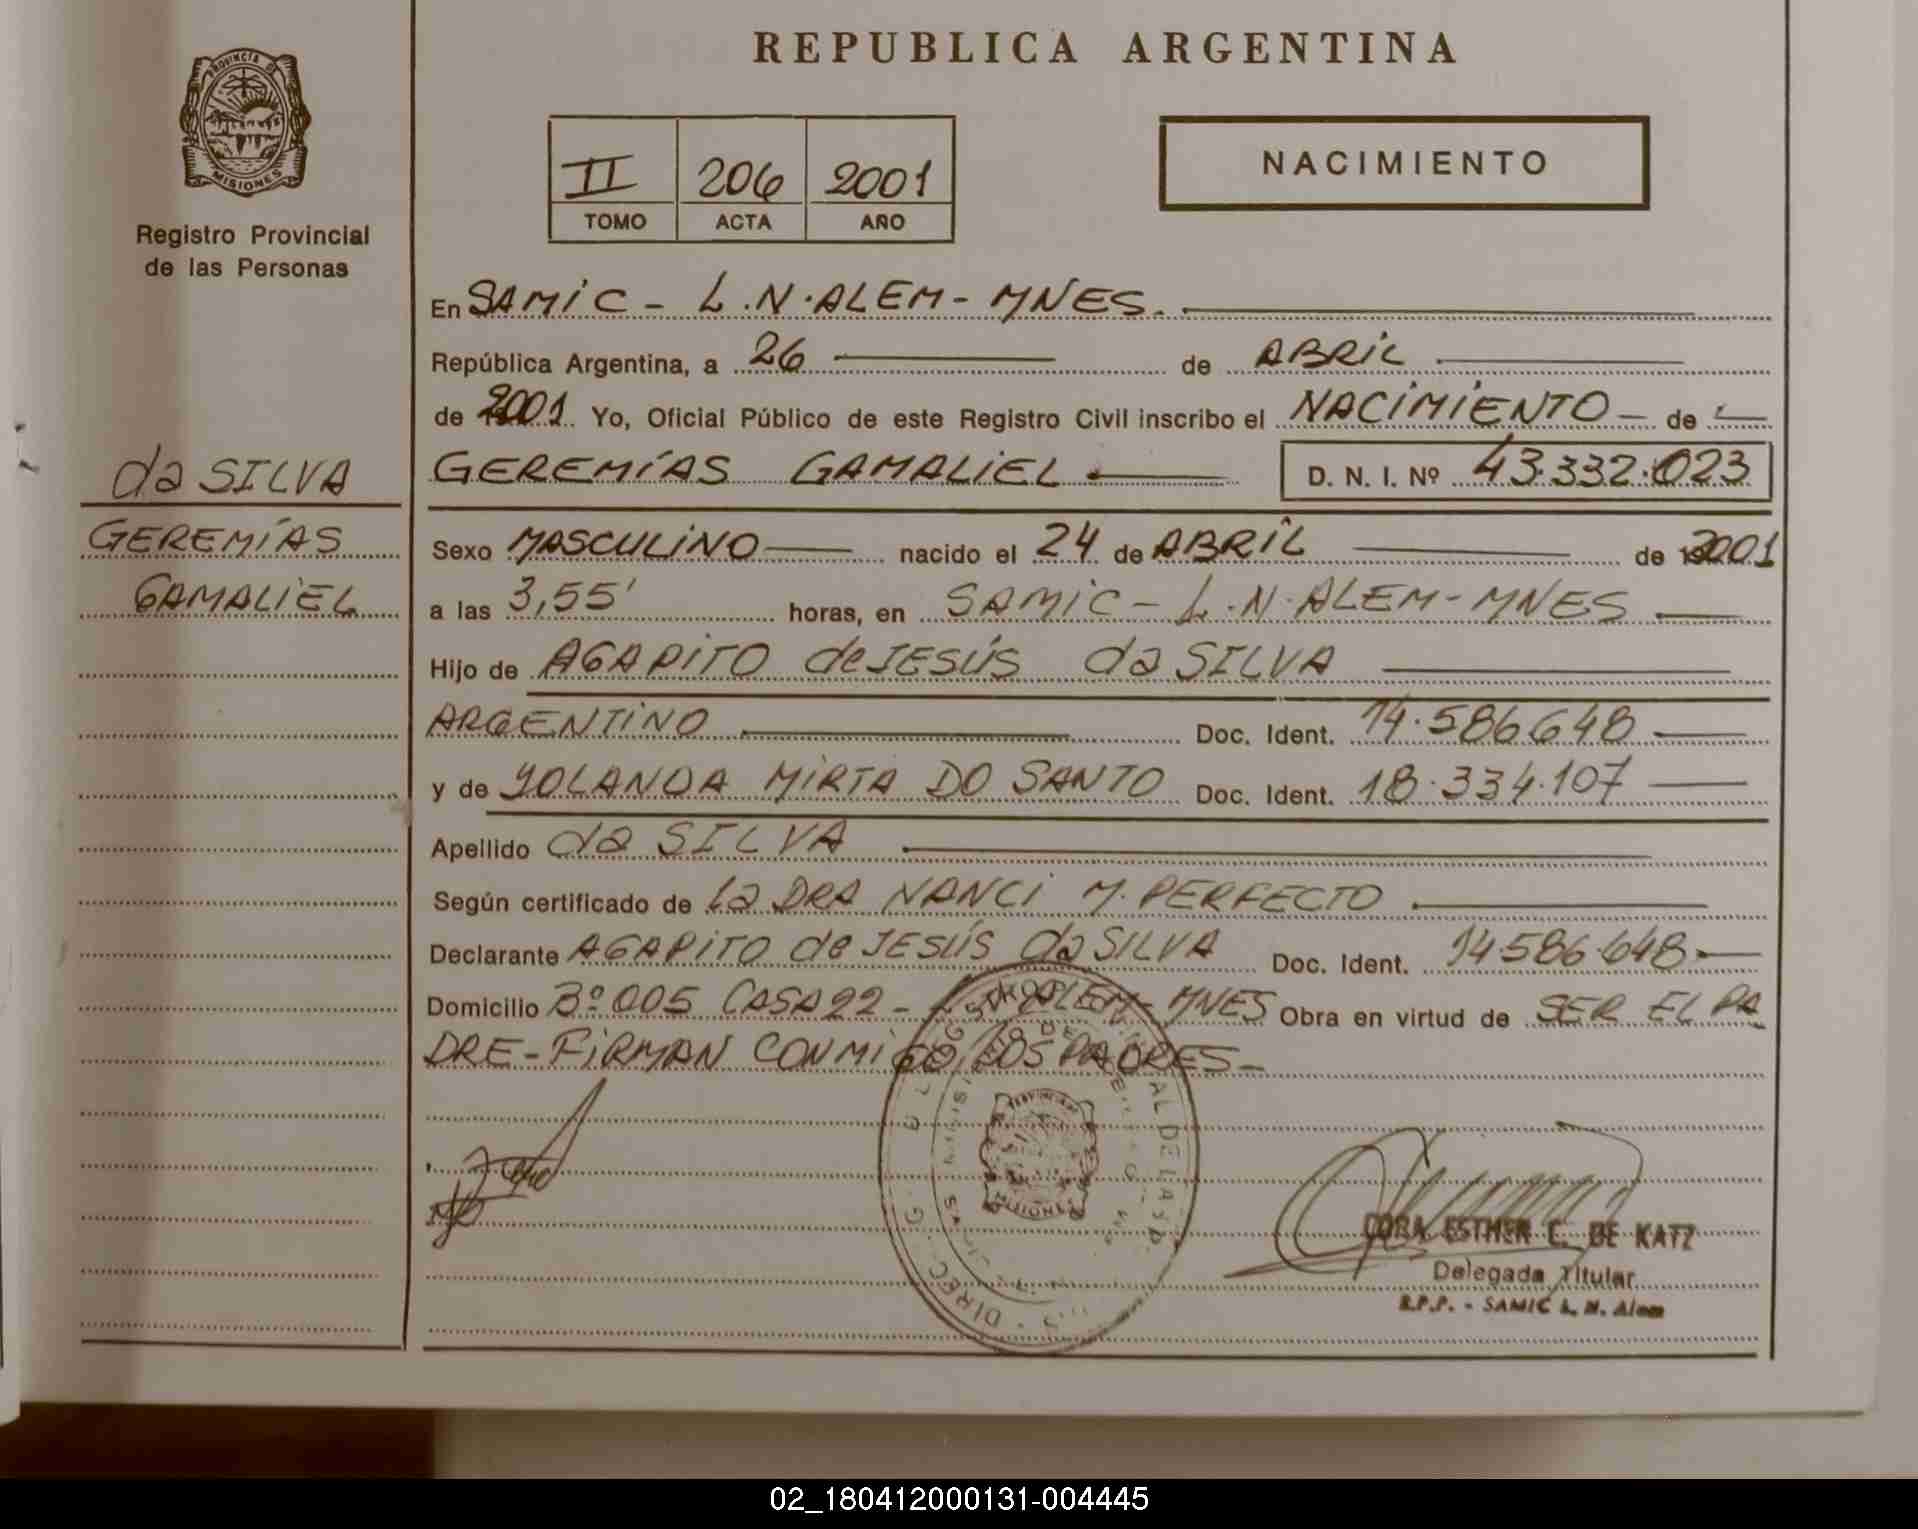 REPUBLICA ARGENTINA
PROVINCIA DE
MISIONES
Registro Provincial
de las Personas
II 206 2001
TOMO ACTA AÑO
NACIMIENTO
En SAMIC - L.N. ALEM - MNES.
República Argentina, a 26 de ABRIL
de 2001 Yo, Oficial Público de este Registro Civil inscribo el NACIMIENTO de
GEREMÍAS GAMALIEL D. N. I. Nº 43.332.023
da SILVA
GEREMÍAS
GAMALIEL
Sexo MASCULINO nacido el 24 de ABRIL de 2001
a las 3,55' horas, en SAMIC - L.N. ALEM - MNES
Hijo de AGAPITO de JESÚS da SILVA
ARGENTINO Doc. Ident. 14.586.648
y de YOLANDA MIRTA DO SANTO Doc. Ident. 18.334.107
Apellido da SILVA
Según certificado de La DRA NANCI M. PERFECTO
Declarante AGAPITO de JESÚS da SILVA Doc. Ident. 14.586.648
Domicilio Bº 005 CASA 22 - ALEM - MNES Obra en virtud de SER EL PA
DRE - FIRMAN CONMIGO LOS PADRES -
MISIONES
DORA ESTHER C. DE KATZ
Delegada Titular
R.P.P. - SAMIC L. N. Alem
02_180412000131-004445